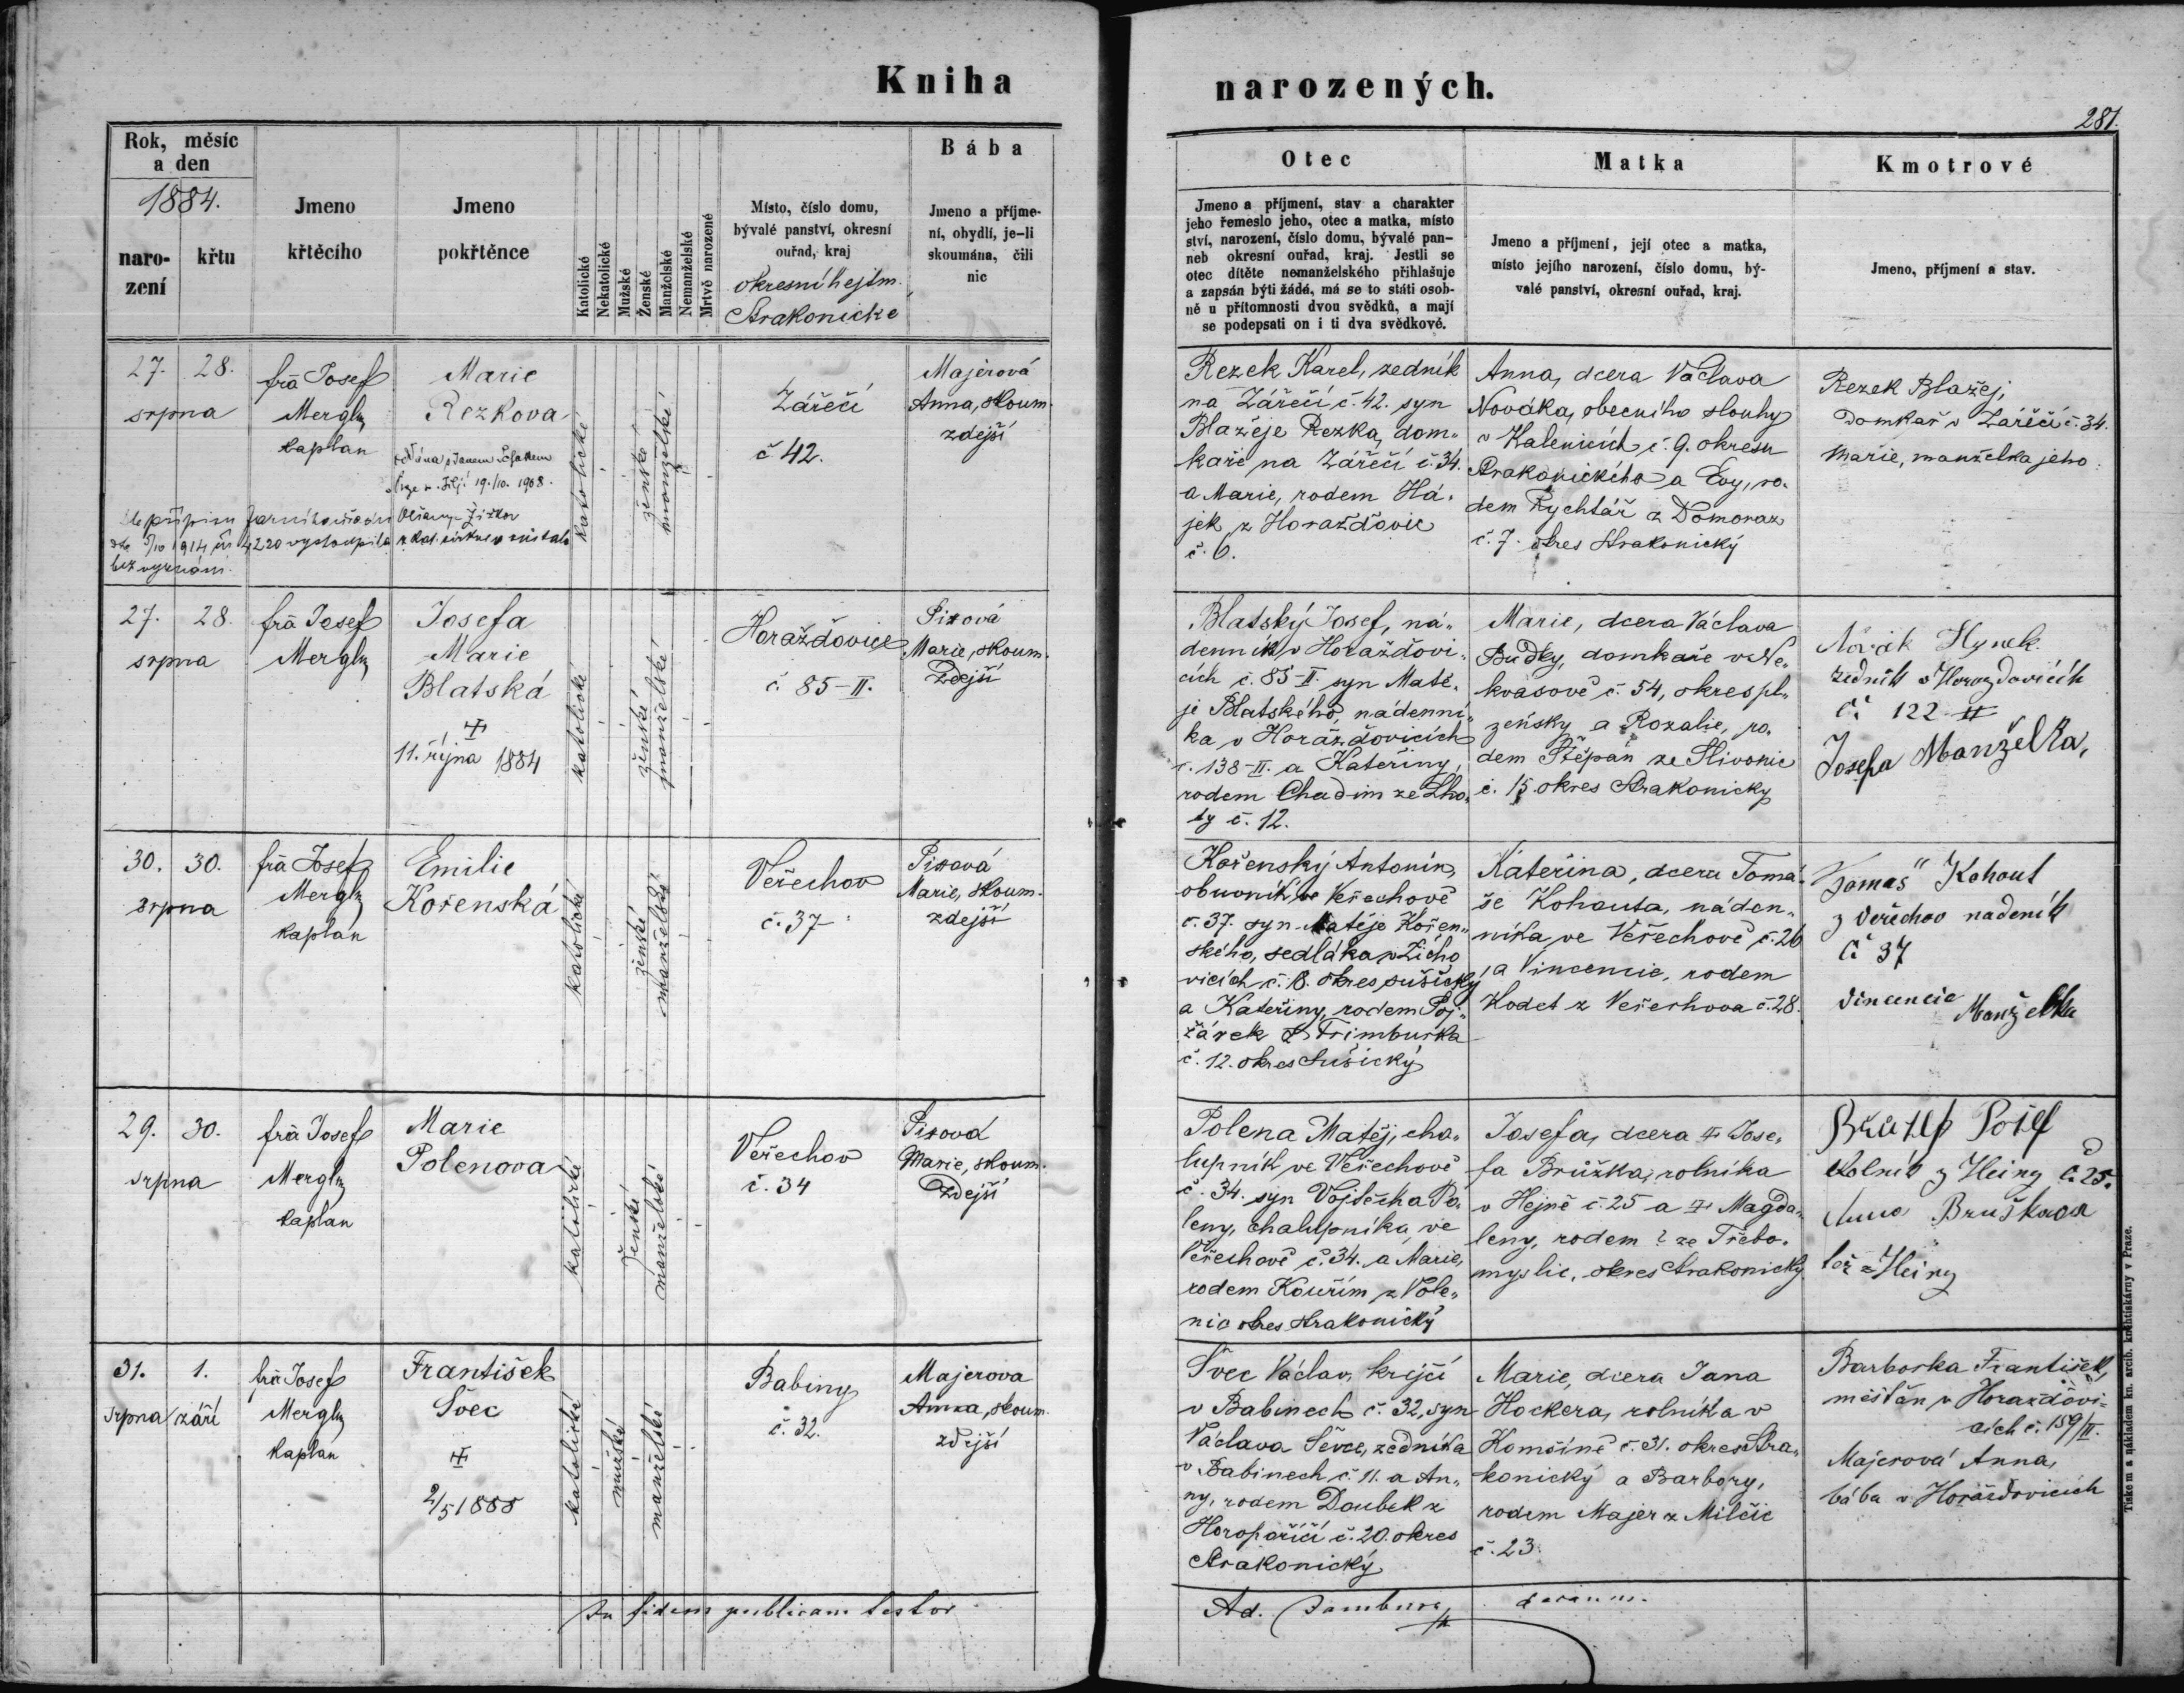 Kniha
narozených.
281.
Rok, měsíc
a den
1884.
naro-
zení
křtu
Jmeno
křtěcího
Jmeno
pokřtěnce
Katolické
Nekatolické
Mužské
Ženské
Manželské
Nemanželské
Mrtvě narozené
Místo, číslo domu,
bývalé panství, okresní
ouřad, kraj
okresní hejtm.
Strakonické
Bába
Jmeno a příjme-
ní, obydlí, je-li
skoumána, čili
nic
Otec
Jmeno a příjmení, stav a charakter
jeho řemeslo jeho, otec a matka, místo
ství, narození, číslo domu, bývalé pan-
neb okresní ouřad, kraj. Jestli se
otec dítěte nemanželského přihlašuje
a zapsán býti žádá, má se to státi osob-
ně u přítomnosti dvou svědků, a mají
se podepsati on i ti dva svědkové.
Matka
Jmeno a příjmení, její otec a matka,
místo jejího narození, číslo domu, bý-
valé panství, okresní ouřad, kraj.
Kmotrové
Jmeno, příjmení a stav.
27. 28.
srpna
frà Josef
Mergl
kaplan
Marie
Rezkova
19./10. 1908.
vystoupila z kat. církve
bez vyznání.
katolické
ženské
manželské
Zářečí
č 42.
Majerová
Anna, skoum.
zdejší
Rezek Karel, zedník
na Zářečí č. 42. syn
Blažeje Rezka, dom-
kaře na Zářečí č. 34.
a Marie, rodem Há-
jek z Horažďovic
č. 6.
Anna, dcera Václava
Nováka, obecního slouhy
v Kalenicích č. 9. okresu
Strakonického a Evy, ro-
dem Rychtář z Domoraz
č. 7. okres Strakonický
Rezek Blažej,
Domkař v Zářečí č. 34.
Marie, manželka jeho.
27. 28.
srpna
frà Josef
Mergl
Josefa
Marie
Blatská
11. října 1884
katolické
ženské
manželské
Horažďovice
č. 85-II.
Pixová
Marie, skoum.
Zdejší
Blatský Josef, ná-
denník v Horažďovi-
cích č. 85-II. syn Matě-
je Blatského, nádenní-
ka v Horažďovicích
č. 138-II. a Kateřiny,
rodem Chadim ze Lho-
ty č. 12.
Marie, dcera Václava
Budky, domkaře v Ne-
kvasově č. 54, okres pl-
zeňský a Rozalie, ro-
dem Štěpán ze Slivonic
č. 15. okres Strakonický
Novák Hynek
zedník v Horazdovicích
č. 122 II
Josefa Manželka,
30. 30.
srpna
frà Josef
Mergl
kaplán
Emilie
Kořenská
katolické
ženské
manželské
Veřechov
č. 37
Pixová
Marie, skoum.
zdejší
Kořenský Antonín,
obuvník ve Veřechově
č. 37. syn Matěje Kořen-
ského, sedláka v Žicho-
vicích č. 8. okres sušický
a Kateřiny, rodem Poj-
žárek z Frimburka
č. 12. okres Sušický
Kateřina, dcera Tomá-
še Kohouta, náden-
níka ve Veřechově č. 26
a Vincencie, rodem
Kodet z Veřechova č. 28.
Tomaš Kohout
z Veřechov nadeník
č 37
Vincencie Manželka
29. 30.
srpna
frà Josef
Mergl
kaplan
Marie
Polenova
katolické
ženské
manželské
Veřechov
č. 34
Pixová
Marie, skoum.
Zdejší
Polena Matěj, cha-
lupník ve Veřechově
č. 34. syn Vojtěcha Po-
leny, chalupníka ve
Veřechově č. 34. a Marie,
rodem Kouřím z Vole-
nic okres Strakonický
Josefa, dcera Jose-
fa Brůžka, rolníka
v Hejné č. 25 a Magda-
leny, rodem ? ze Třebo-
myslic, okres Strakonický
Rolník z Heiny č. 25.
Anna Bruškova
též z Heiny
31. 1.
srpna září
frà Josef
Mergl
kaplán
František
Švec
2/5 1888
katolické
mužské
manželské
Babiny
č. 32.
Majerova
Anna, skoum.
zdejší
Švec Václav, krejčí
v Babinech č. 32, syn
Václava Ševce, zedníka
v Babinech č. 11. a An-
ny, rodem Doubek z
Horopoříčí č. 20. okres
Strakonický
Marie, dcera Jana
Hockera, rolníka v
Komšíně č. 31. okres Stra-
konický a Barbory,
rodem Majer z Milčic
č. 23.
Barborka František,
měšťan v Horažďovi-
cích č. 159/II.
Majerová Anna,
bába v Horažďovicích
In fidem publicam testor
Ad.
Tiskem a nákladem kn. arcib. knihtiskárny v Praze.